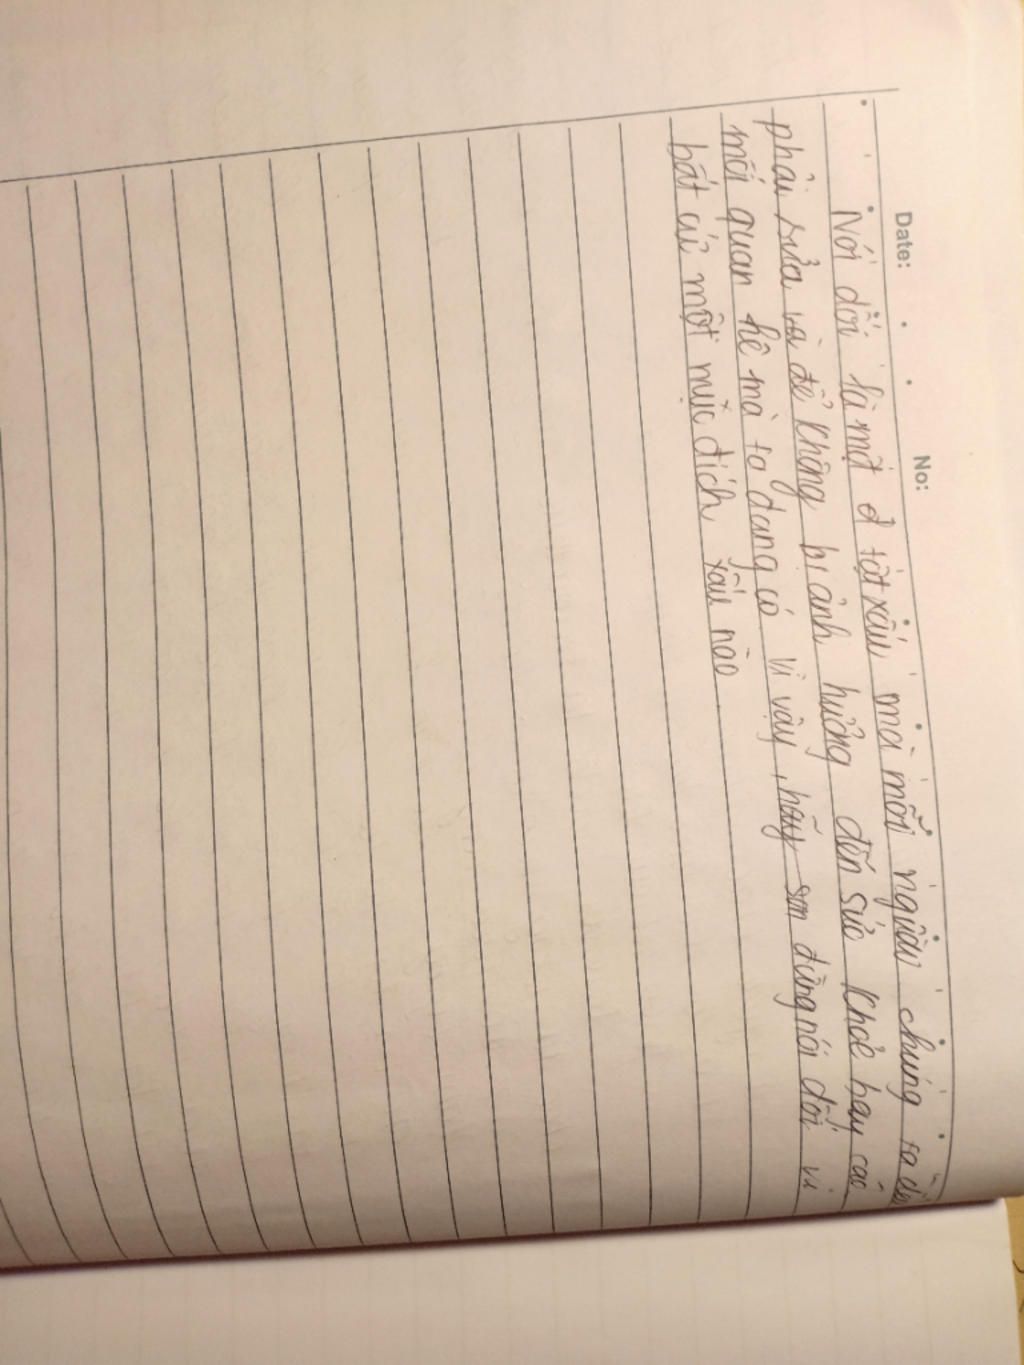 Date: No:
Nói dối là một tật xấu mà mỗi người chúng ta đều
phải sửa và để không bị ảnh hưởng đến sức khoẻ hay các
mối quan hệ mà ta đang có vì vậy, hãy đừng nói dối vì
bất cứ một mục đích xấu nào